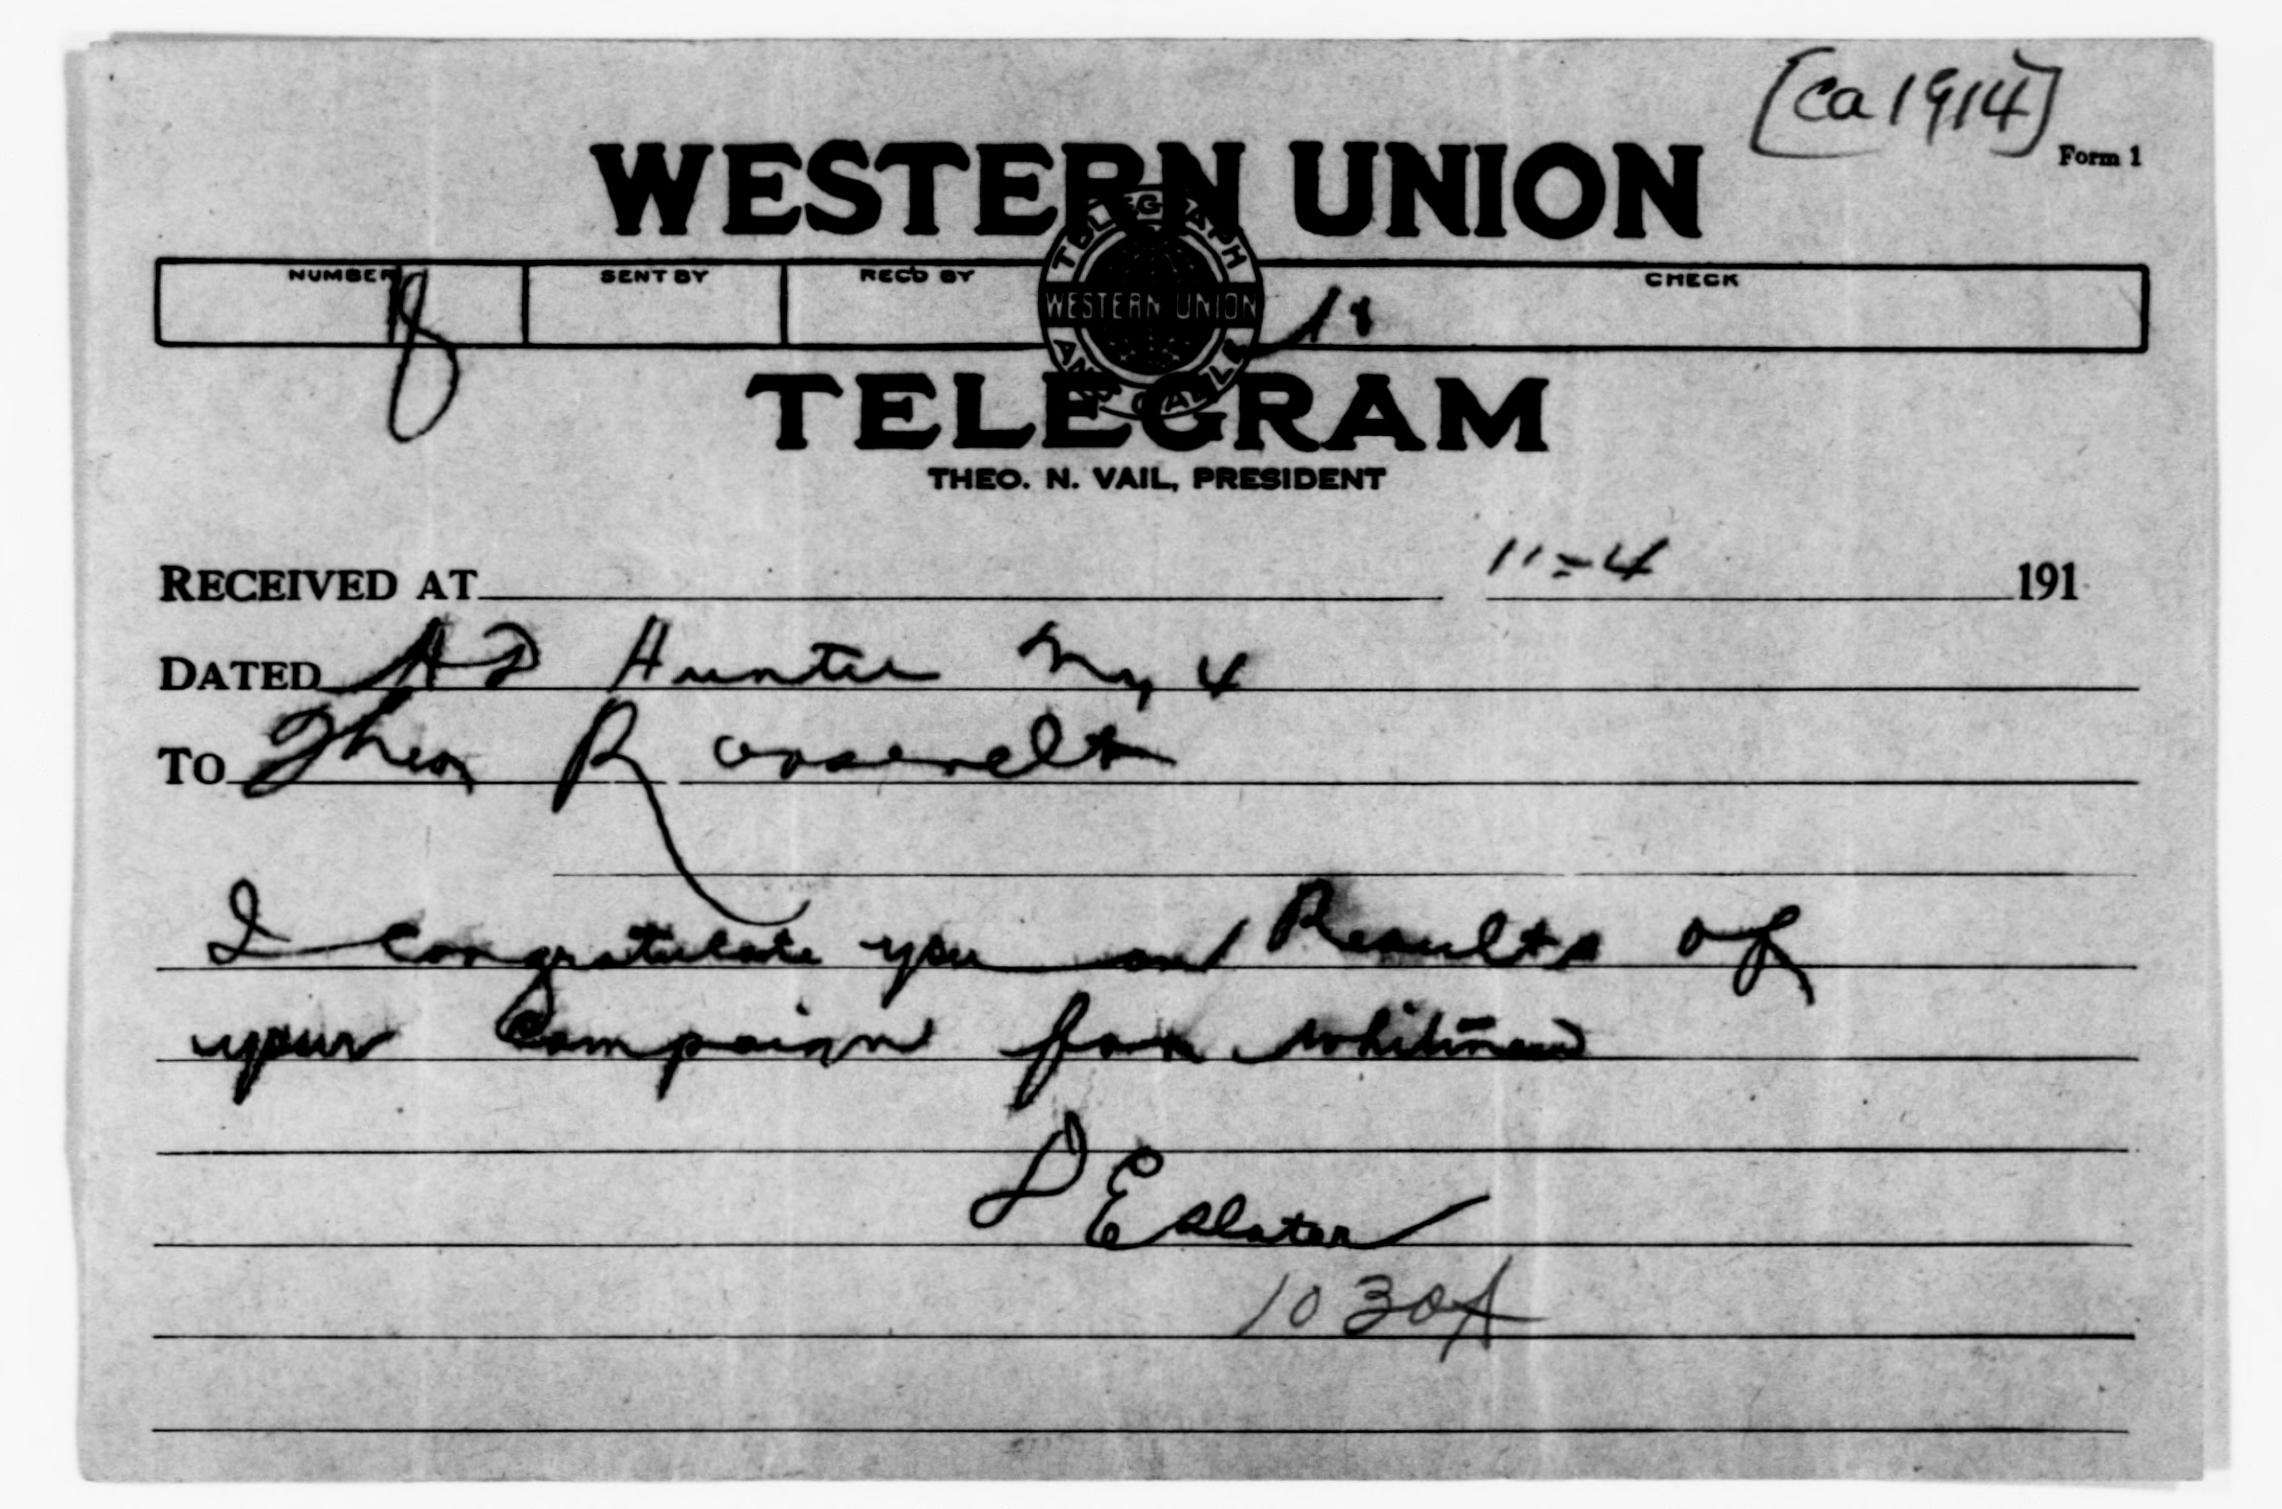 [ca 1914]
Form 1
WESTERN UNION
NUMBER SENT BY REC'D BY CHECK
8
TELEGRAPH WESTERN UNION AND CABLE
TELEGRAM
THEO. N. VAIL, PRESIDENT
RECEIVED AT 11-4 191
DATED Hunter Ny 4
TO Theo Roosevelt
I congratulate you on Results of
your Campaign for Whitman
D E Slater
1030A